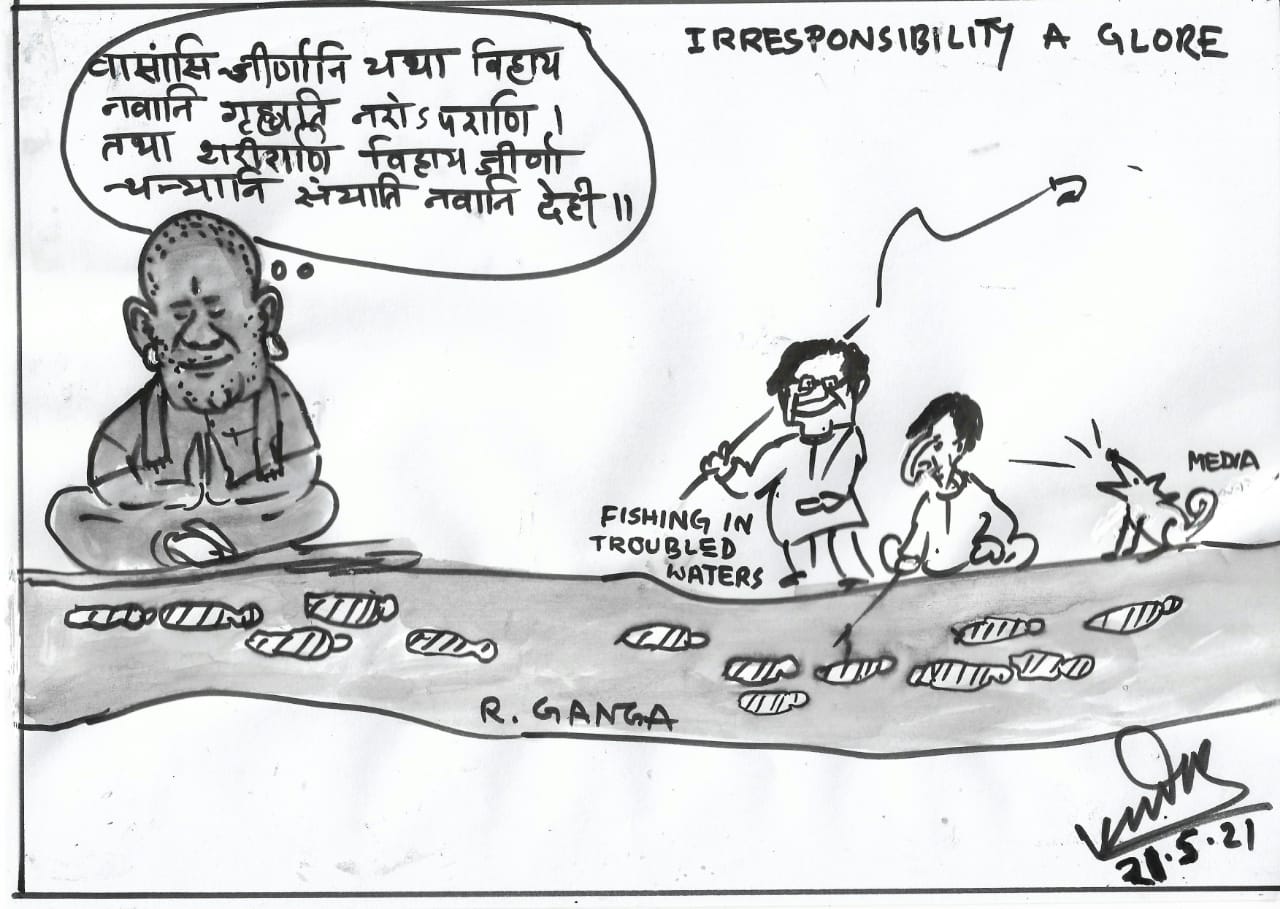 IRRESPONSIBILITY A GLORE
वासांसि जीर्णानि यथा विहाय
नवानि गृह्णाति नरोऽपराणि।
तथा शरीराणि विहाय जीर्णा
न्यन्यानि संयाति नवानि देही॥
MEDIA
FISHING IN
TROUBLED
WATERS
R. GANGA
21.5.21